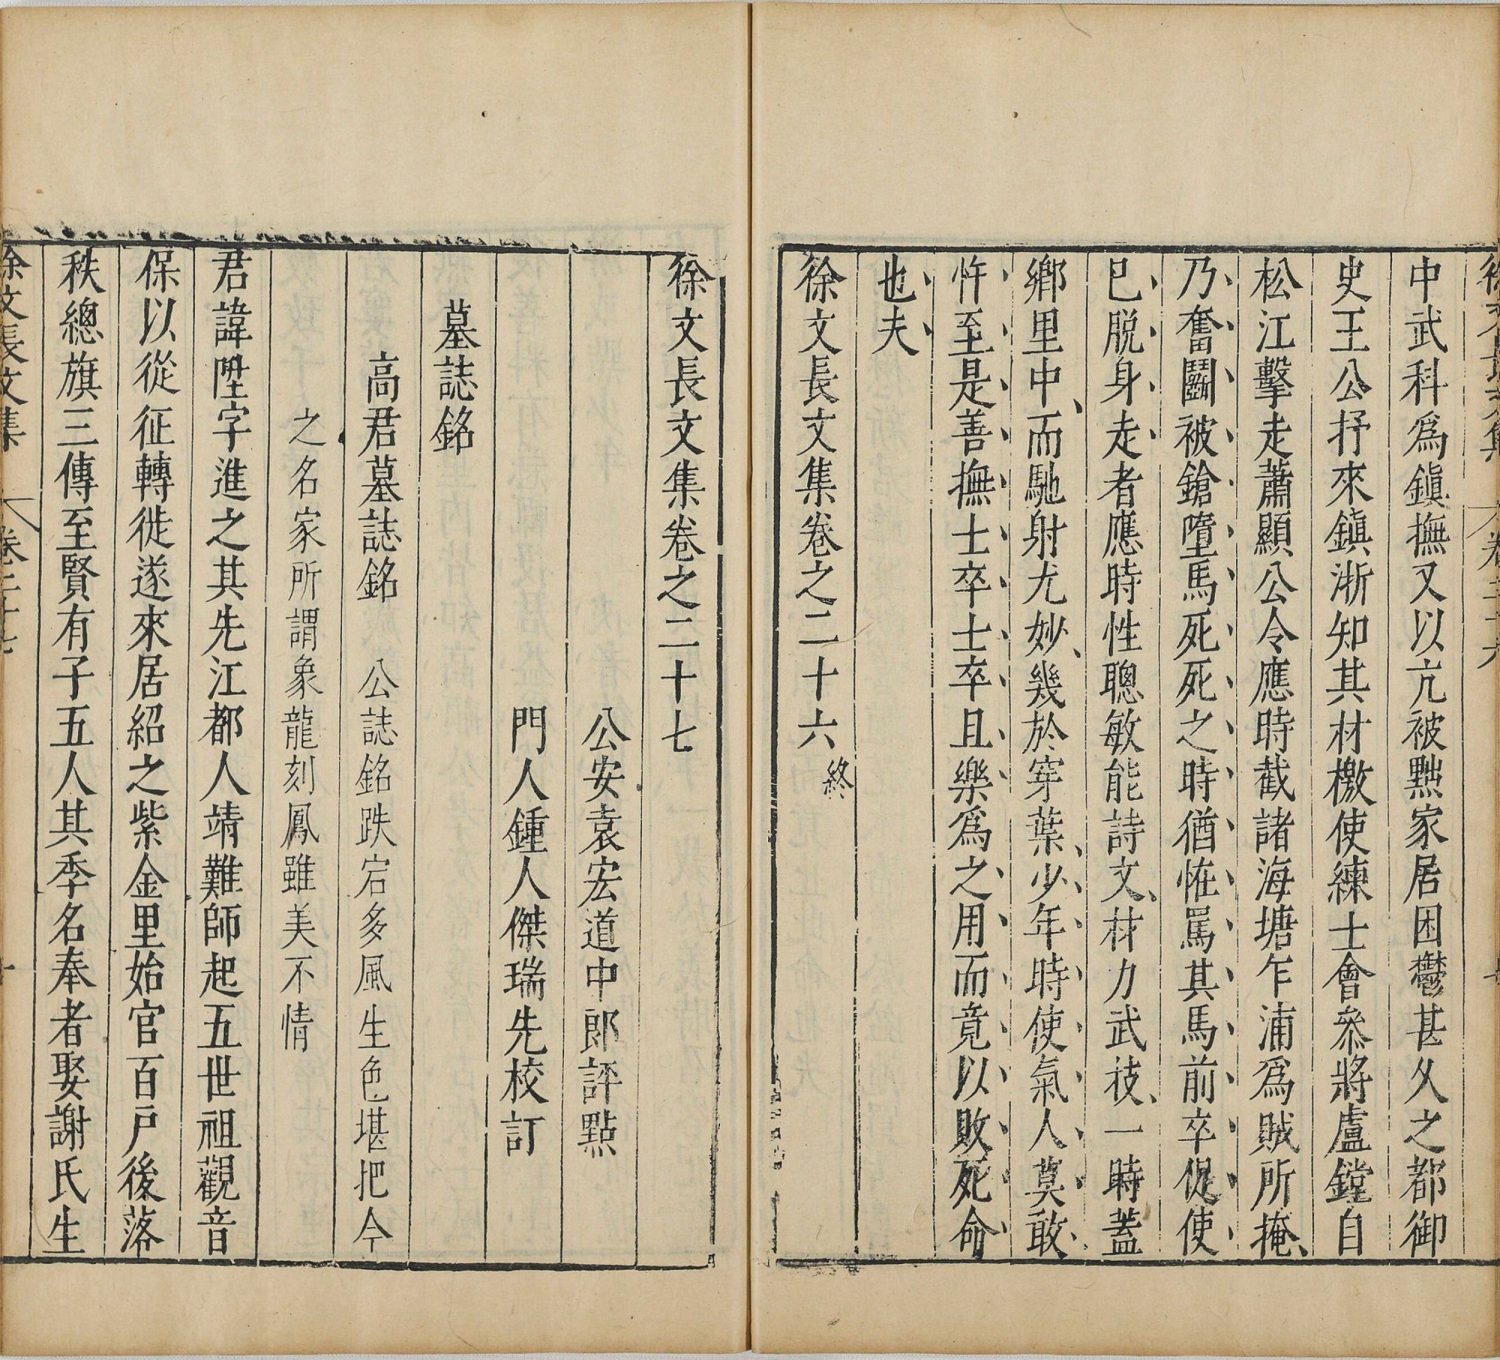 中武科為鎮撫又以亢被黜家居困鬱甚久之都御
史王公抒來鎮淅知其材檄使練士會叅將盧鏜自
松江擊走蕭顯公令應時截諸海塘乍浦為賊所掩
乃奮鬭被鎗墮馬死死之時猶怪罵其馬前卒促使
已脫身走者應時性聰敏能詩文材力武技一時蓋
鄉里中而馳射尤妙幾於穿葉少年時使氣人莫敢
忤至是善撫士卒士卒且樂為之用而竟以敗死命
也夫
徐文長文集卷之二十六終
徐文長文集卷之二十七
公安袁宏道中郎評點
門人鍾人傑瑞先校訂
墓誌銘
高君墓誌銘 公誌銘跌宕多風生色堪把今
之名家所謂象龍刻鳳雖美不情
君諱陞字進之其先江都人靖難師起五世祖觀音
保以從征轉徙遂來居紹之紫金里始官百戶後落
秩總旗三傳至賢有子五人其季名奉者娶謝氏生
徐文長文集 卷二十七